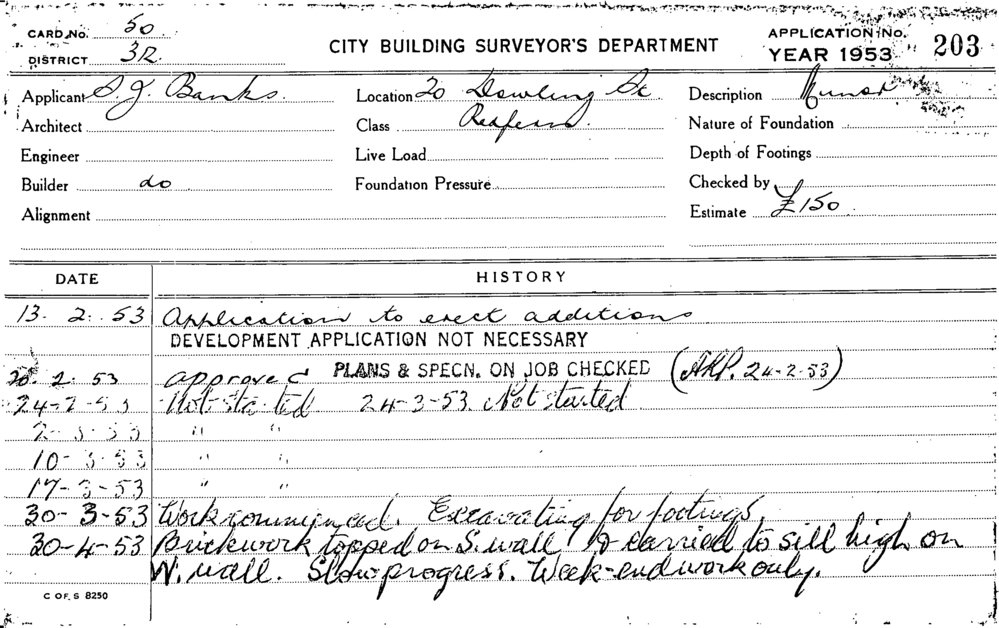 CARD No. 50
DISTRICT 3R
CITY BUILDING SURVEYOR'S DEPARTMENT
APPLICATION No. 203
YEAR 1953
Applicant S J. Banks.
Location 20 Dowling St
Description Minor
Architect
Class Redfern.
Nature of Foundation
Engineer
Live Load
Depth of Footings
Builder do
Foundation Pressure
Checked by
Alignment
Estimate £150.
DATE HISTORY
13. 2. 53 Application to erect additions
DEVELOPMENT APPLICATION NOT NECESSARY
20. 2. 53 approved PLANS & SPECN. ON JOB CHECKED (24-2-53)
24-2-53 Not started 24-3-53. Not started
2-3-53 " "
10-3-53 " "
17-3-53 " "
30-3-53 Work commenced. Excavating for footings.
30-4-53 Brickwork topped on S. wall & carried to sill high on
N. wall. Slow progress. Week-end work only.
C OF S 8250